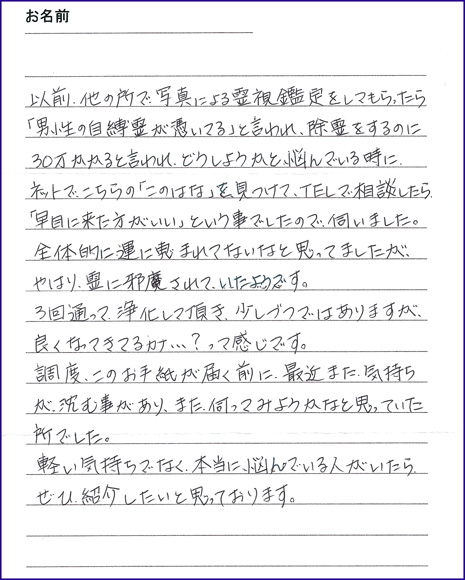 お名前
以前、他の所で、写真による霊視鑑定をしてもらったら
「男性の自縛霊が憑いてる」と言われ、除霊をするのに
30万かかると言われ、どうしようかと、悩んでいる時に、
ネットでこちらの「このはな」を見つけて、TELで相談したら、
「早目に来た方がいい」という事でしたので、伺いました。
全体的に運に恵まれてないなと思ってましたが、
やはり、霊に邪魔されて、いたようです。
3回通って、浄化して頂き、少しづつではありますが、
良くなってきてるカナ…？って感じです。
調度、このお手紙が届く前に、最近また、気持ち
が、沈む事があり、また、伺ってみようかなと思っていた
所でした。
軽い気持ちでなく、本当に、悩んでいる人がいたら
ぜひ、紹介したいと思っております。